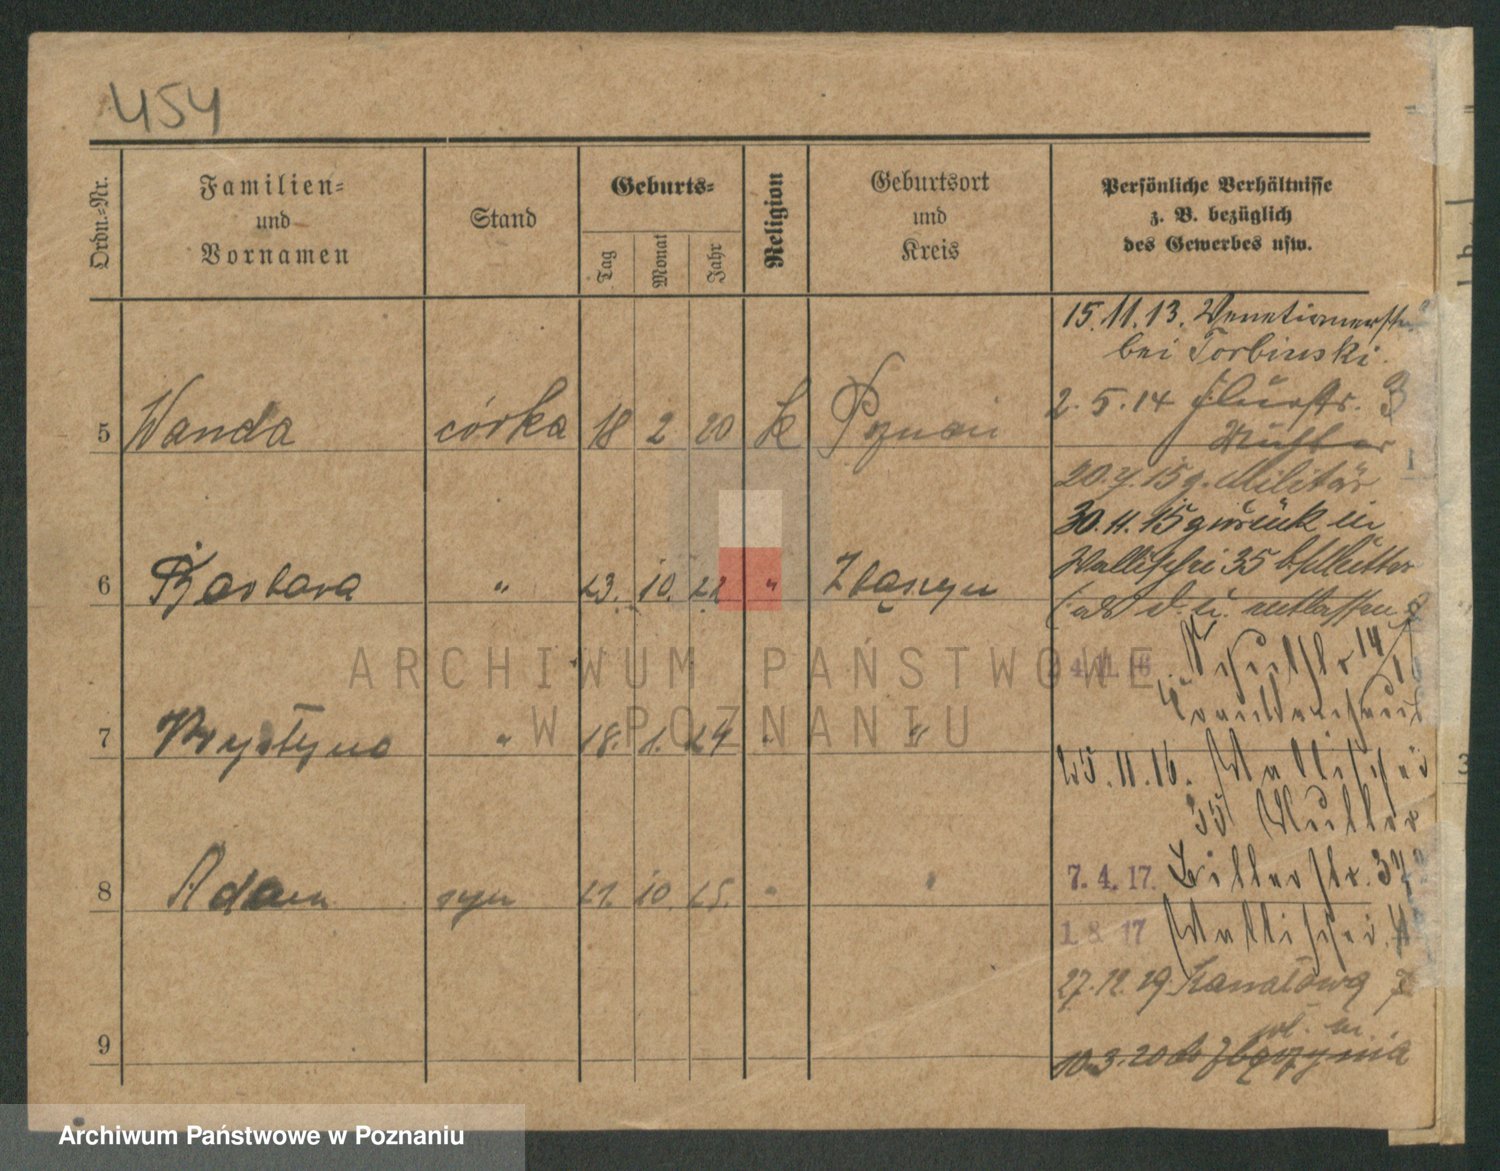 454
Ordn.=Nr.
Familien=
und
Vornamen
Stand
Geburts=
Tag
Monat
Jahr
Religion
Geburtsort
und
Kreis
Persönliche Verhältnisse
z. B. bezüglich
des Gewerbes usw.
15.11.13. Venetianerstr.
bei Torbinski.
2.5.14 Flurstr. 3
5 Wanda córka 18 2 20 k Poznań
Mutter
20.7.15 z. Militär
30.11.15 zurück in
Wallischei 35 b/Mutter
6 Barbara " 23. 10. 22 " Zbąszyn
(als d. u. entlassen)
4.11.16
14
7 Krystyna " 18. 1. 24 " "
25.11.16. Wallischei
35 Mutter
7.4.17. Bitterstr. 37
8 Adam syn 21. 10. 25. " "
1.8.17 Wallischei
27.12.19. Kanałowa 7
9
10.3.20 do Zbąszynia
ARCHIWUM PAŃSTWOWE
W POZNANIU
Archiwum Państwowe w Poznaniu